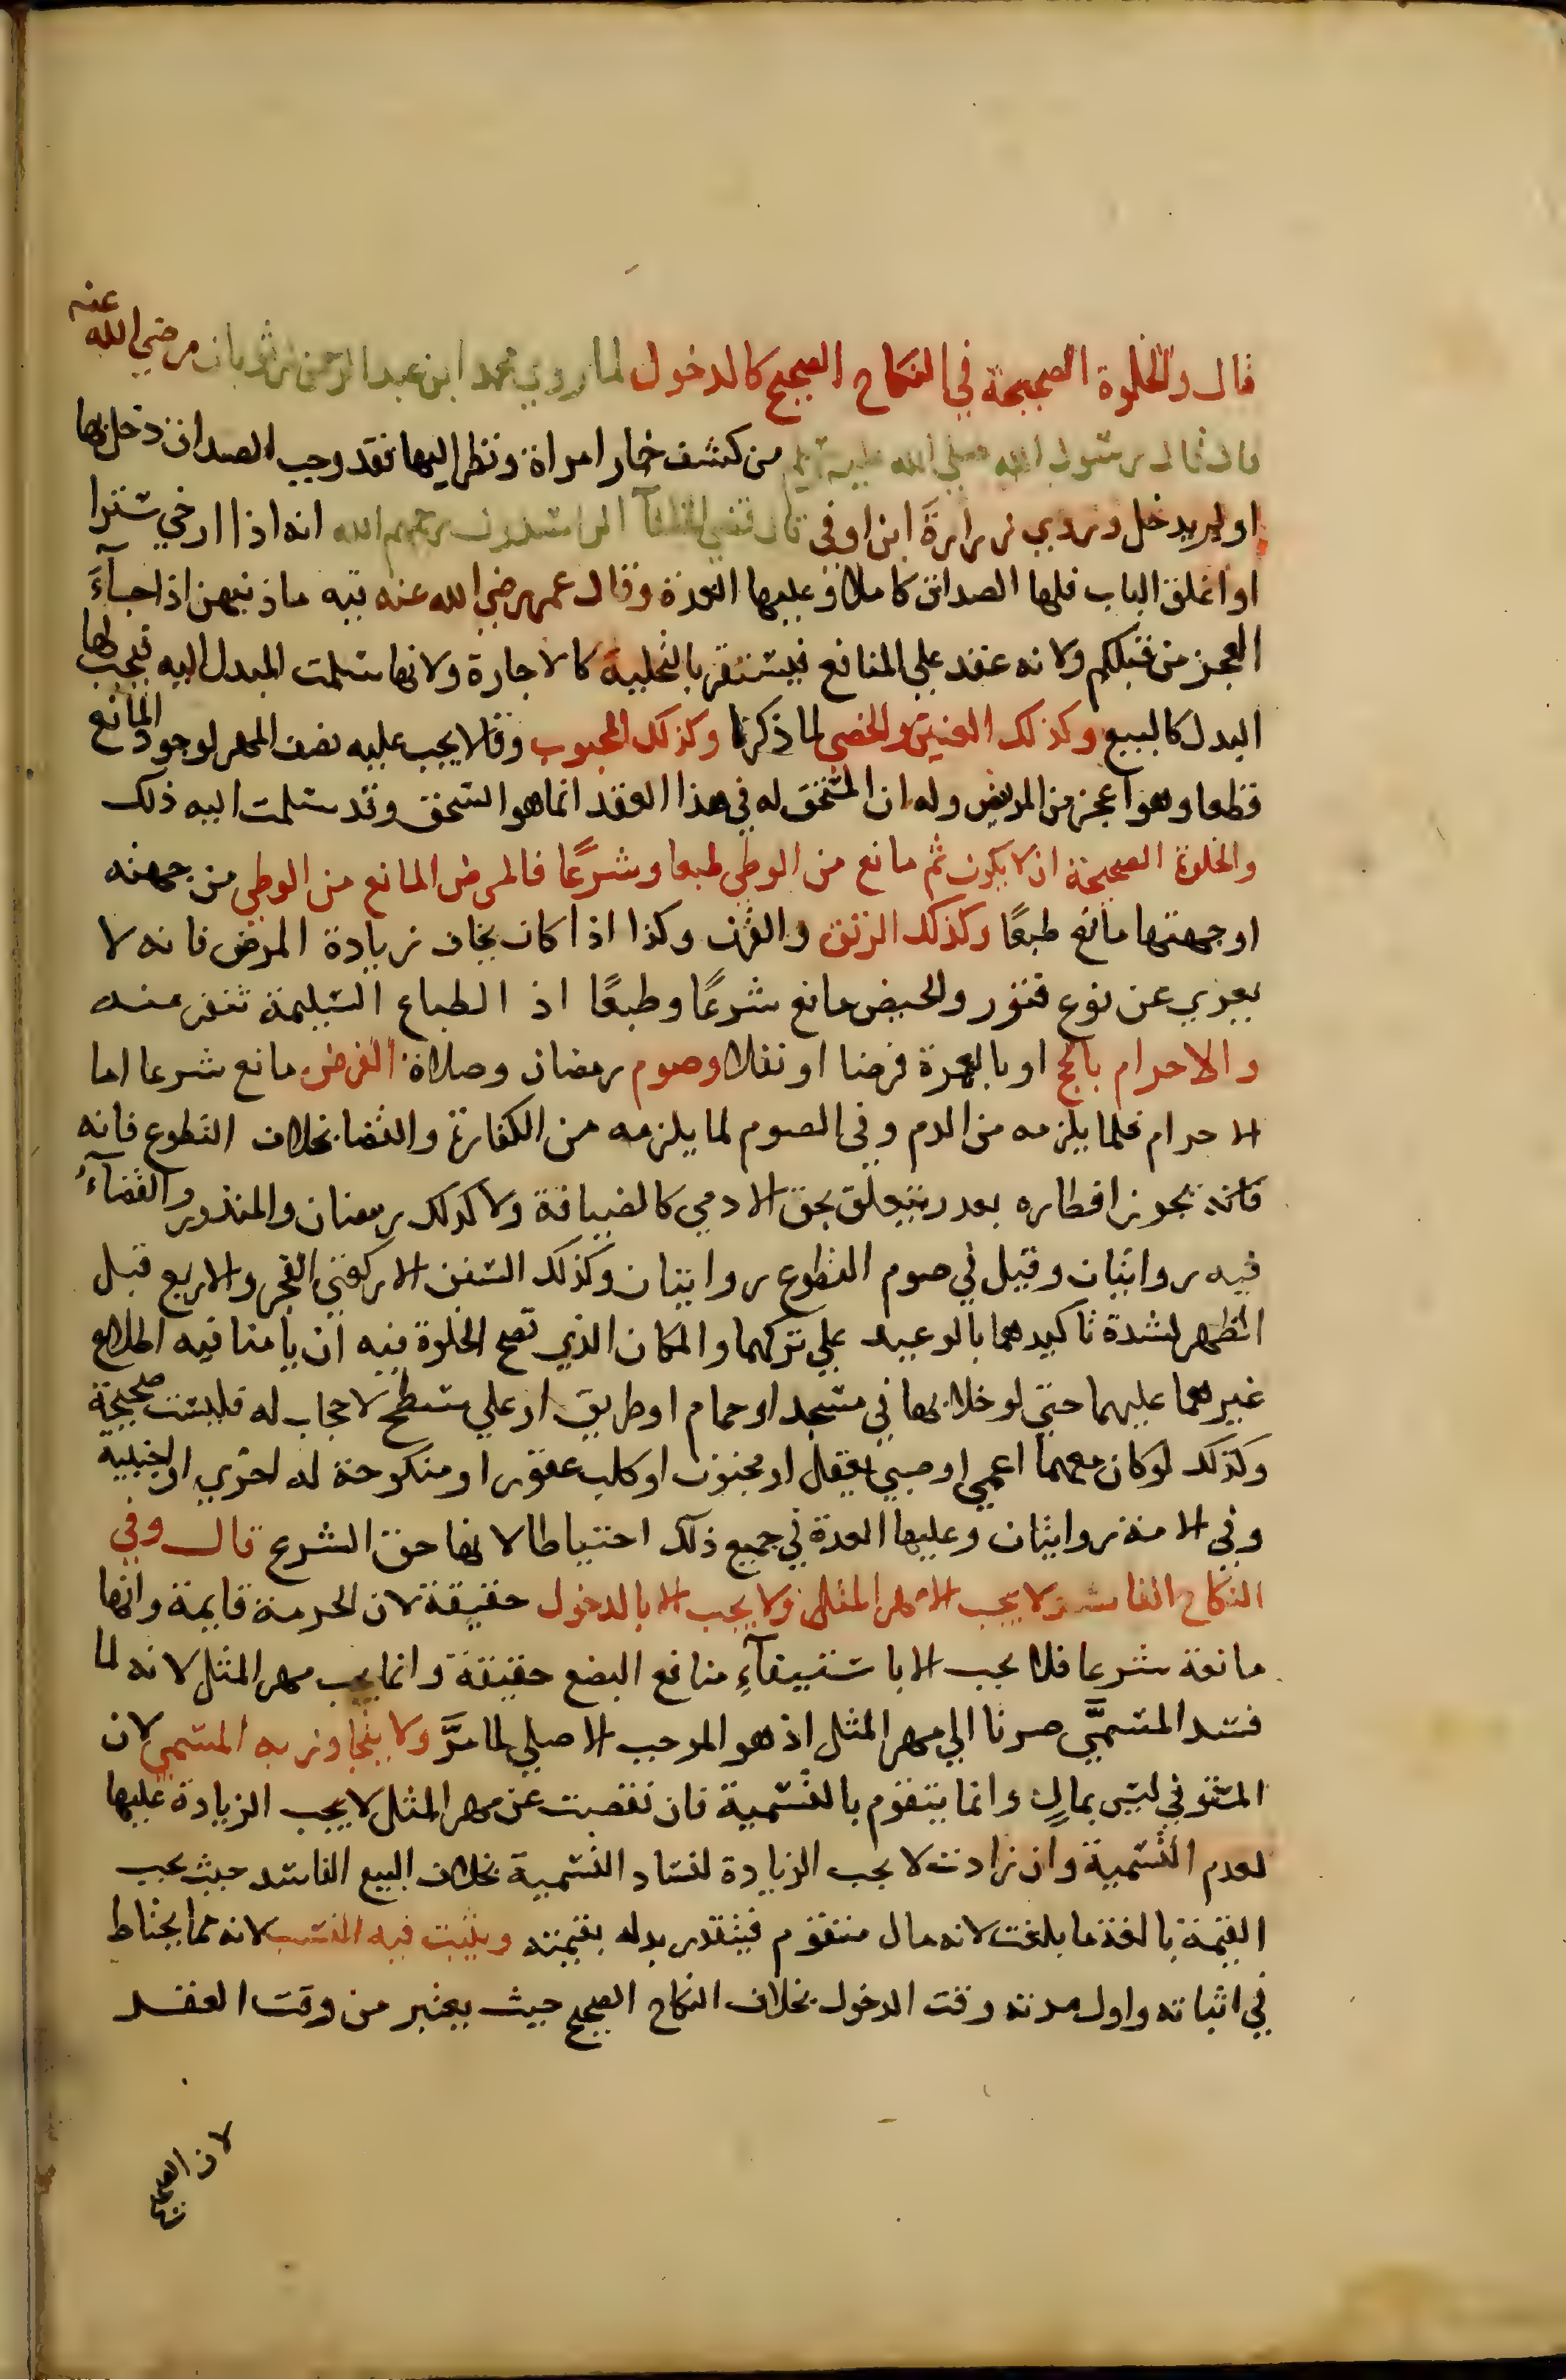 قال والخلوة الصحيحة في النكاح الصحيح كالدخول لما روي محمد ابن عبد الرحمن بن ثوبان رضي الله عنه
قال قال رسول الله صلي الله عليه وسلم من كشف خمار امراة ونظر اليها فقد وجب الصداق دخل بها
او لم يدخل وروي زرارة ابن اوفي قال قضي الخلفآ الراشدون رحمهم الله انه اذا ارخي سترا
او اغلق الباب فلها الصداق كاملا وعليها العدة وقال عمر رضي الله عنه فيه ما ذنبهن اذا جآء
العجز من قبلكم ولانه عقد علي المنافع فيستقر بالتخلية كالاجارة ولانها سلمت المبدل اليه فيجب لها
البدل كالبيع وكذلك العنين والخصي لما ذكرنا وكذلك المجبوب وقالا يجب عليه نصف المهر لوجود المانع
قطعا وهو اعجز من المريض وله ان المستحق له في هذا العقد انما هو السحق وقد سلمت اليه ذلك
والخلوة الصحيحة ان لا يكون ثم مانع من الوطي طبعا وشرعًا فالمرض المانع من الوطي من جهته
او جهتها مانع طبعًا وكذلك الرتق والقرن وكذا اذا كان يخاف زيادة المرض فانه لا
يعري عن نوع فتور والحيض مانع شرعًا وطبعًا اذ الطباع السليمة تنفر عنه
والاحرام بالحج او بالعمرة فرضا او نفلا وصوم رمضان وصلاة الفرض مانع شرعا اما
الاحرام فلما يلزمه من الدم وفي الصوم لما يلزمه من الكفارة والقضا بخلاف التطوع فانه
فانه يجوز افطاره بعذر يتعلق بحق الادمي كالضيافة ولا كذلك رمضان والمنذور والقضآء
فيه روايتان وقيل في صوم التطوع روايتان وكذلك السنن الا ركعتي الفجر والاربع قبل
الظهر لشدة تاكيدهما بالوعيد علي تركهما والمكان الذي تصح الخلوة فيه ان يامنا فيه اطلاع
غيرهما عليهما حتي لو خلا بها في مسجد او حمام او طريق او علي سطح لا حجاب له فليست صحيحة
وكذلك لو كان معهما اعمي او صبي يعقل او مجنون او كلب عقور او منكوحة له اخري او اجنبية
وفي الامة روايتان وعليها العدة في جميع ذلك احتياطا لانها حق الشرع قال وفي
النكاح الفاسد لا يجب الا مهر المثل ولا يجب الا بالدخول حقيقة لان الحرمة قايمة وانها
مانعة شرعا فلا يجب الا باستيفآء منافع البضع حقيقة وانما يجب مهر المثل لانه لما
فسد المسمَّي صرنا الي مهر المثل اذ هو الموجب الاصلي لما مرَّ ولا يتجاوز به المسمي لان
المستوفي ليس بمال وانما يتقوم بالتسمية فان نقصت عن مهر المثل لا يجب الزيادة عليها
لعدم التسمية وان زادت لا يجب الزيادة لفساد التسمية بخلاف البيع الفاسد حيث يجب
القيمة بالغة ما بلغت لانه مال متقوم فيتقدر بدله بقيمته ويثبت فيه النسب لانه مما يحتاط
في اثباته واول مدته وقت الدخول بخلاف النكاح الصحيح حيث يعتبر من وقت العقد
لان الصحيح